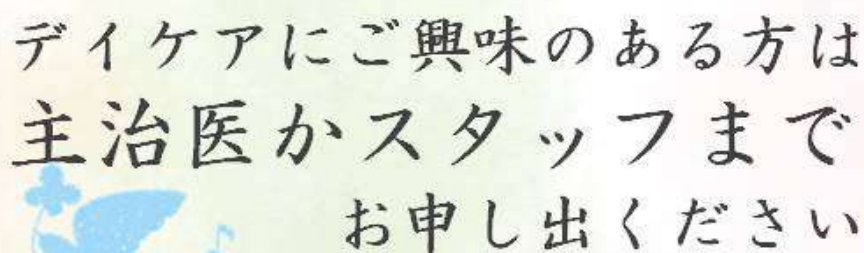 デイケアにご興味のある方は
主治医かスタッフまで
お申し出ください